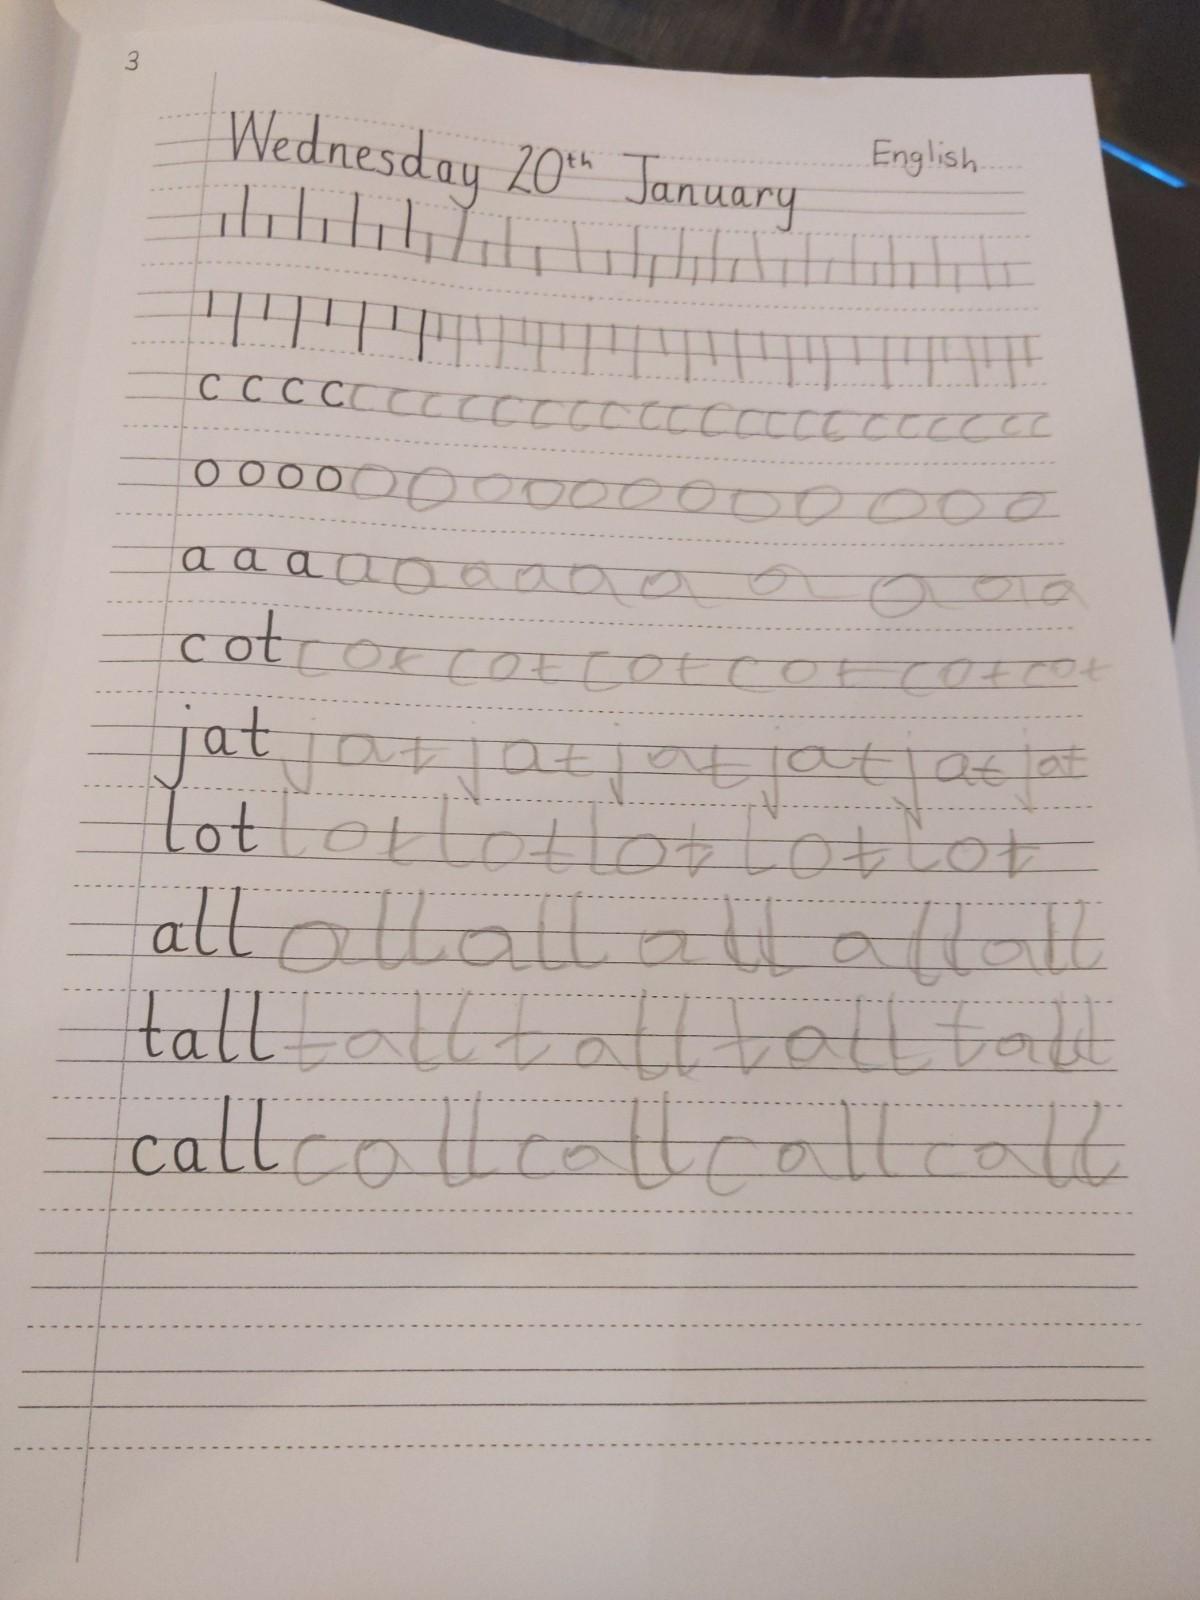 3
Wednesday 20th January English
c c c c c c c c c c c c c c c c c c c c c c c c c
o o o o o o o o o o o o o o o o
a a a a a a a a a a a a a
cot cot cot cot cot cot cot
jat jat jat jat jat jat jat
lot lot lot lot lot lot
all all all all all all
tall tall tall tall tall
call call call call call